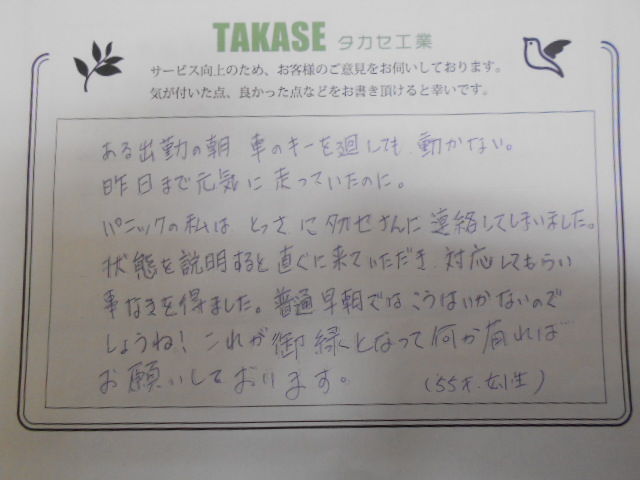 TAKASE タカセ工業
サービス向上のため、お客様のご意見をお伺いしております。
気が付いた点、良かった点などをお書き頂けると幸いです。
ある出勤の朝 車のキーを廻しても動かない。
昨日まで元気に走っていたのに。
パニックの私は とっさに タカセさんに 連絡してしまいました。
状態を説明すると直ぐに来ていただき、対応してもらい
事なきを得ました。普通早朝ではこうはいかないので
しょうね! これが御縁となって何か有れば
お願いしております。 (55才.女性)